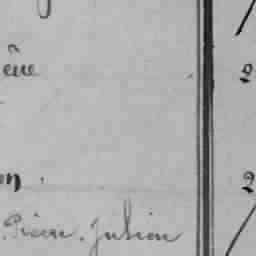 ène 2
on . 2
Pierre Julien